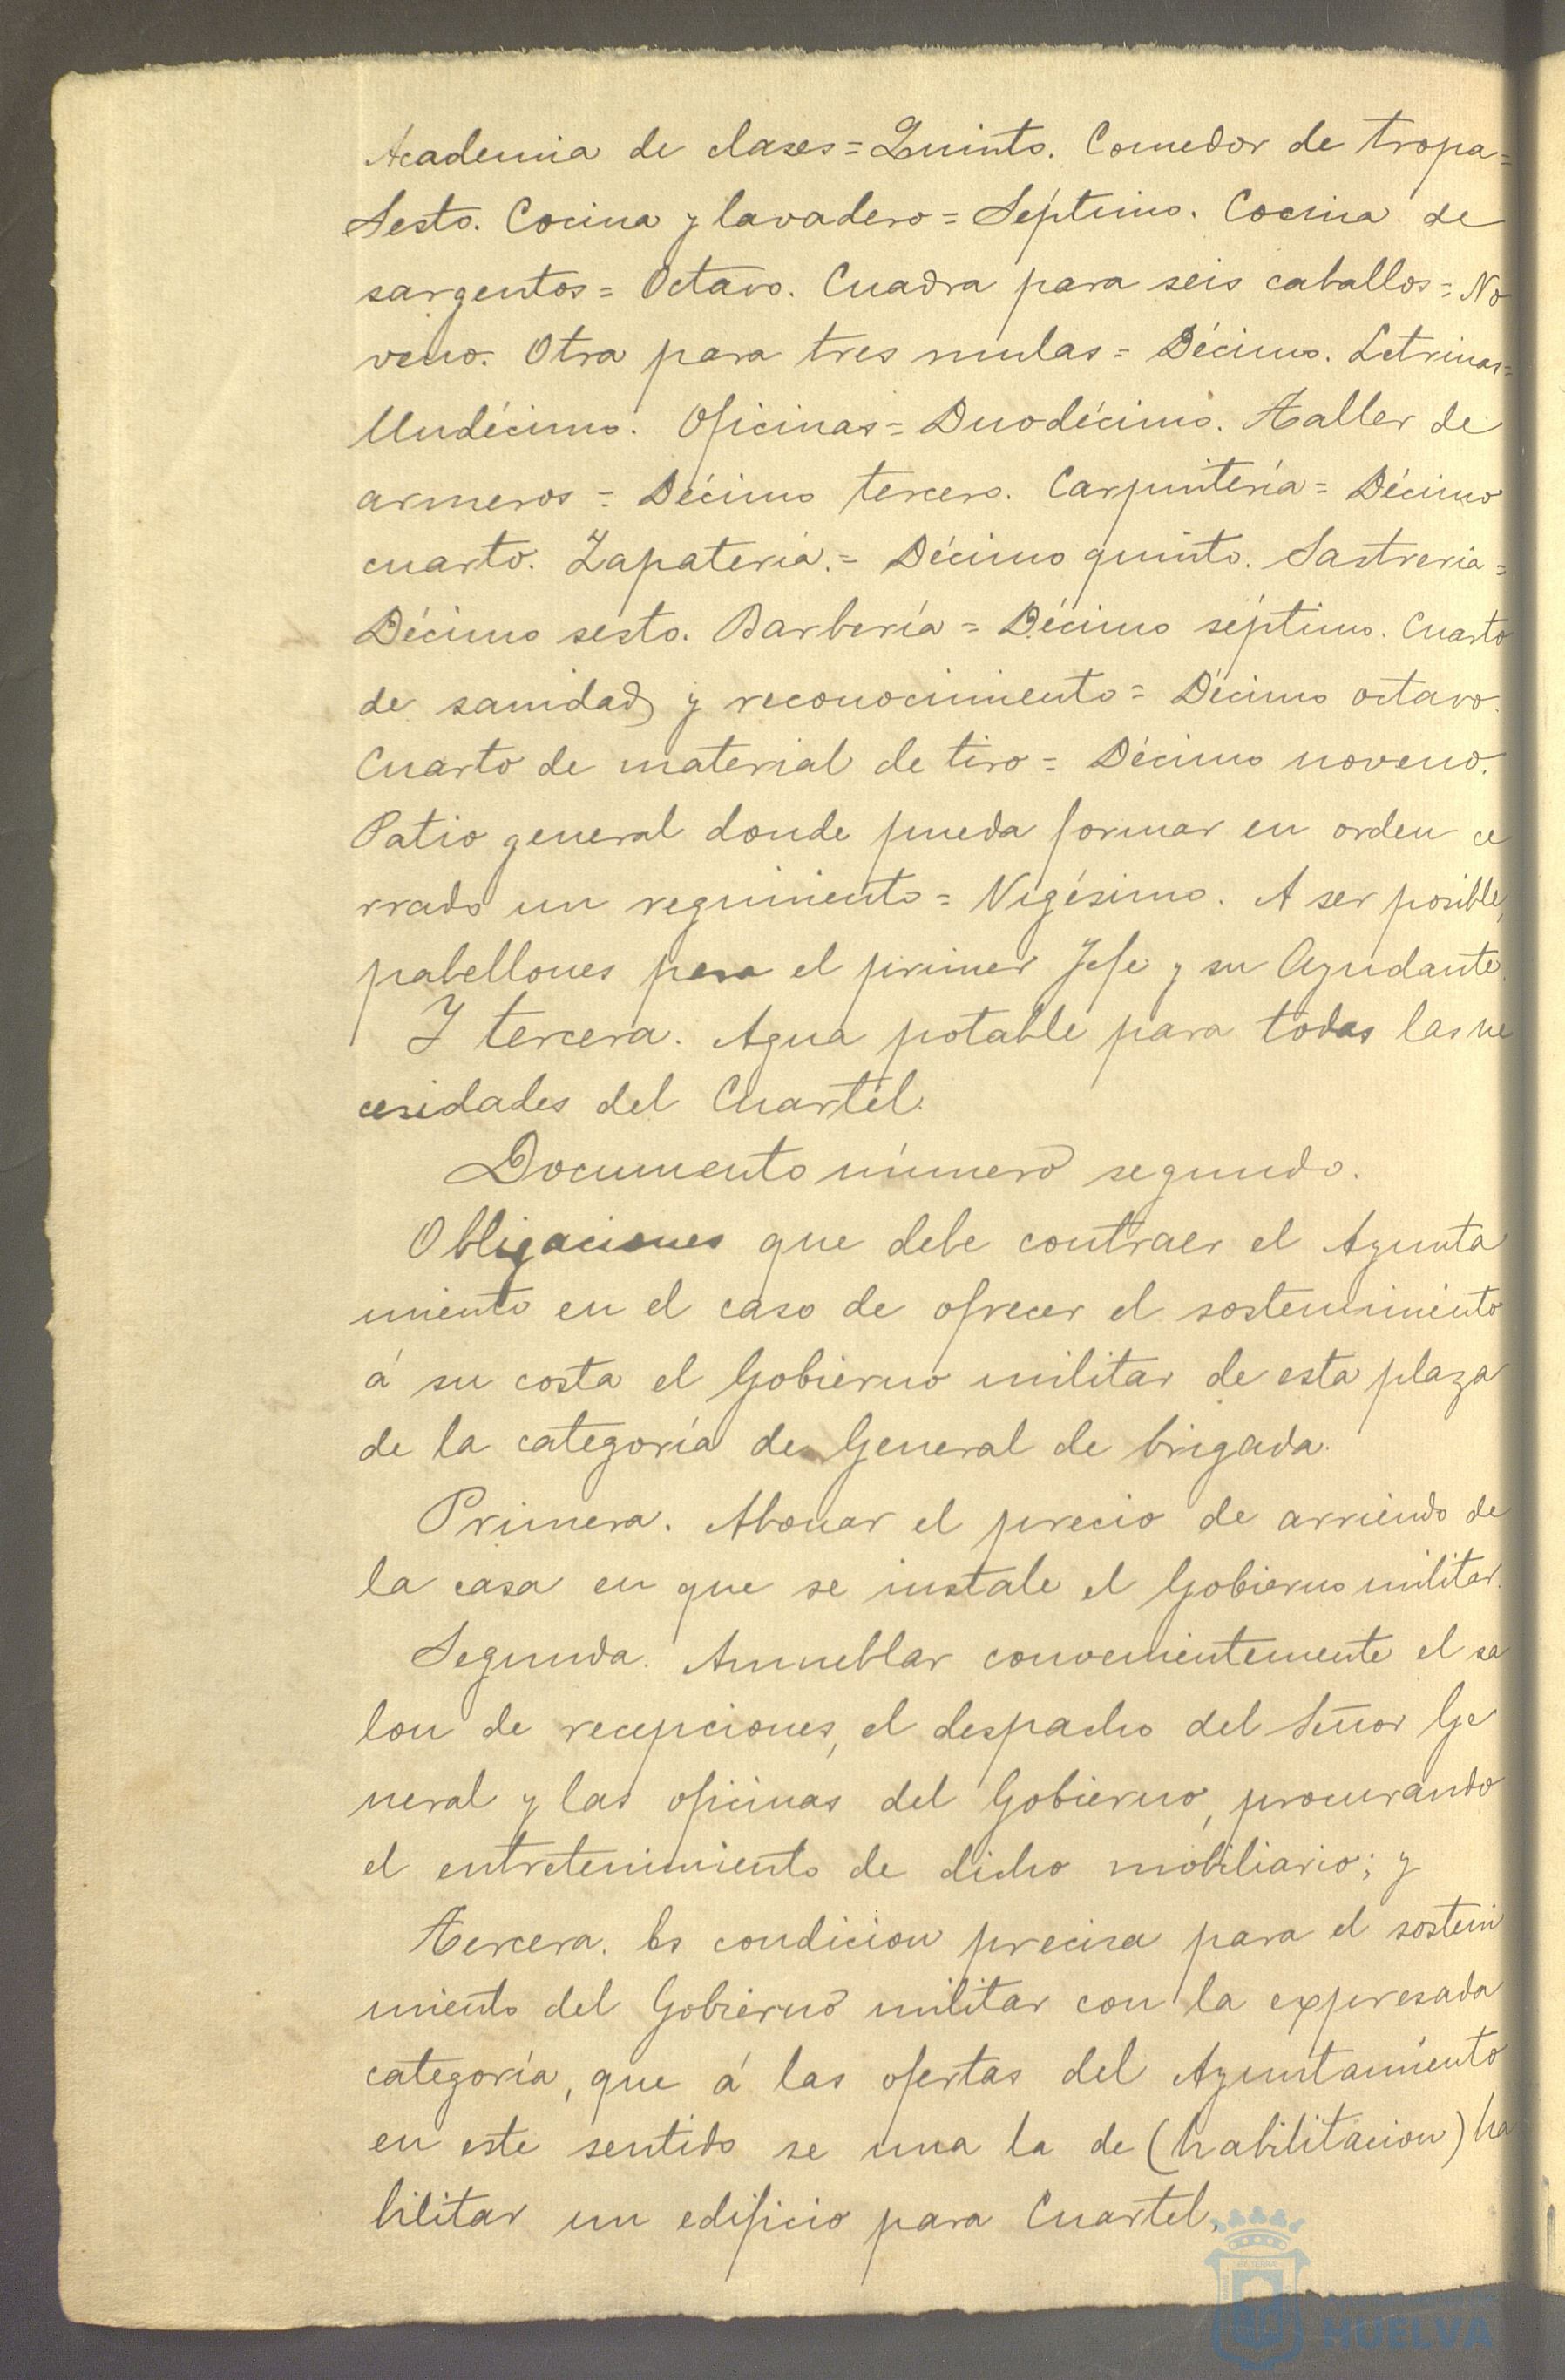 Academia de clases = Quinto. Comedor de tropa =
Sesto. Cocina y lavadero = Séptimo. Cocina de
sargentos = Octavo. Cuadra para seis caballos = No
veno. Otra para tres mulas = Décimo. Letrinas =
Undécimo. Oficinas = Duodécimo. Taller de
armeros = Décimo tercero. Carpintería = Décimo
cuarto. Zapatería. = Décimo quinto. Sastreria =
Décimo sesto. Barbería = Décimo séptimo. Cuarto
de sanidad y reconocimiento = Décimo octavo.
Cuarto de material de tiro = Décimo noveno.
Patio general donde pueda formar en orden ce
rrado un regimiento = Vigésimo. A ser posible,
pabellones para el primer Jefe y su Ayudante.
Y tercera. Agua potable para todas las ne
cesidades del Cuartel.
Documento número segundo.
Obligaciones que debe contraer el Ayunta
miento en el caso de ofrecer el sostenimiento
á su costa el Gobierno militar de esta plaza
de la categoría de General de brigada.
Primera. Abonar el precio de arriendo de
la casa en que se instale el Gobierno militar.
Segunda. Amueblar convenientemente el sa
lon de recepciones, el despacho del Señor Ge
neral y las oficinas del Gobierno, procurando
el entretenimiento de dicho mobiliario; y
Tercera. Es condicion precisa para el sosteni
miento del Gobierno militar con la expresada
categoría, que á las ofertas del Ayuntamiento
en este sentido se una la de (habilitacion) ha
bilitar un edificio para Cuartel.
HUELVA